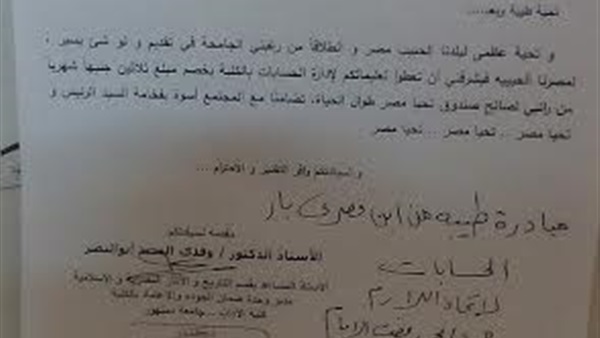 تحية طيبة وبعد.....
و تحية عظمى لبلدنا الحبيب مصر و انطلاقاً من رغبتي الجامحة في تقديم و لو شئ يسير ،
لمصرنا الحبيبه فيشرفني أن تعطوا تعليماتكم لإدارة الحسابات بالكلية بخصم مبلغ ثلاثين جنيها شهريا
من راتبي لصالح صندوق تحيا مصر طوال الحياة، تضامنا مع المجتمع أسوة بفخامة السيد الرئيس و
تحيا مصر .. تحيا مصر .. تحيا مصر
و لسيادتكم وافر التقدير و الاحترام ...
مبادرة طيبه من ابن مصرى بار
مقدمه لسيادتكم
الأستاذ الدكتور/ وفدى السيد أبوالنضر
الحسابات
الأستاذ المساعد بقسم التاريخ و الآثار المصرية و الإسلامية
لاتخاذ اللازم
مدير وحدة ضمان الجوده والاعتماد بالكلية
كلية الآداب ... جامعة دمنهور